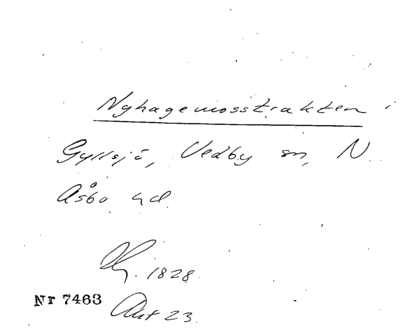 Nyhagemosstrakten i
Gyllsjö, Vedby sn, N.
Åsbo hd
Ny. 1828.
Nr 7463
Akt 23.